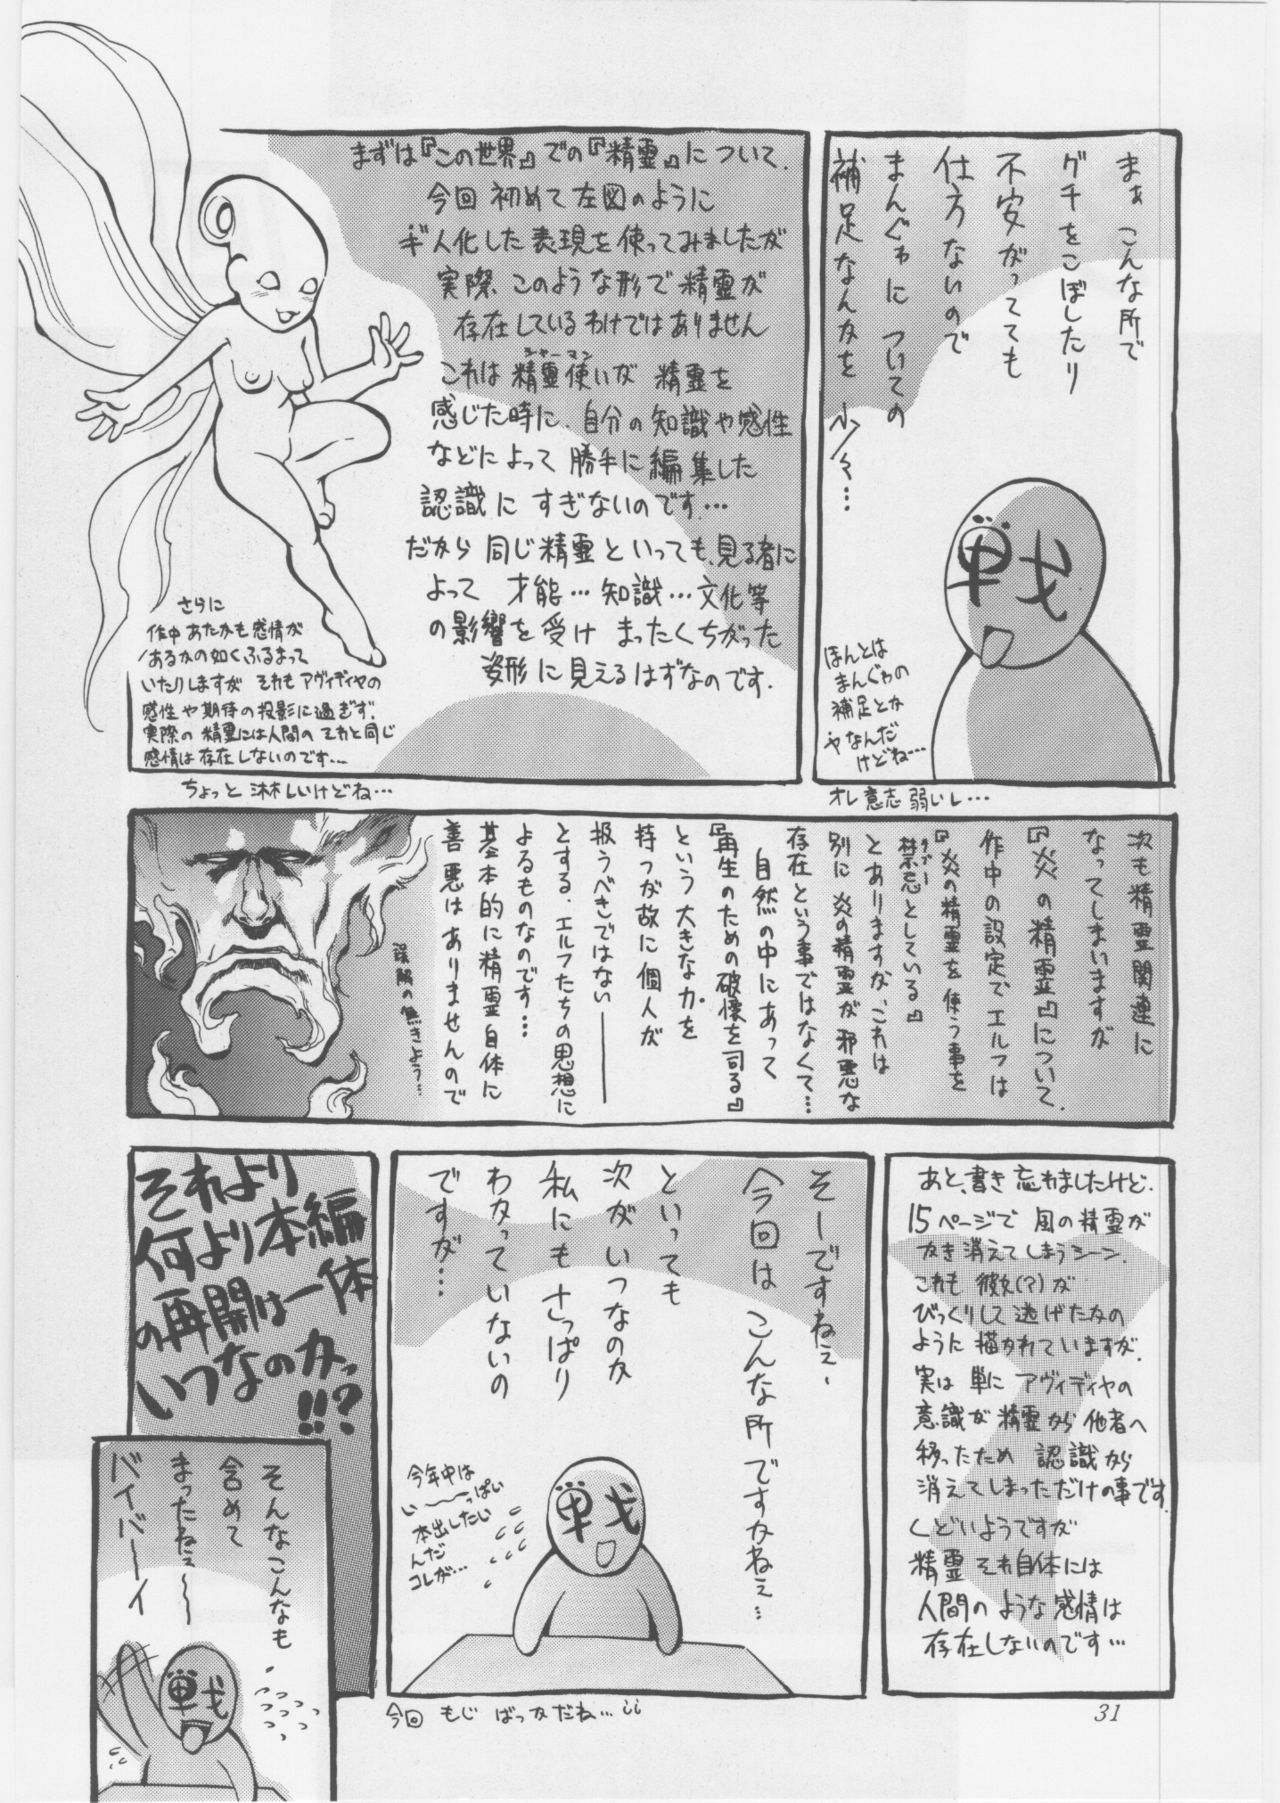 まぁ こんな所で
グチをこぼしたり
不安がってても
仕方ないので
まんぐゎに ついての
補足なんかを 少々…
戦
ほんとは
まんぐゎの
補足とか
ヤなんだ
けどね…
オレ意志弱いし…
まずは『この世界』での『精霊』について.
今回 初めて左図のように
ギ人化した表現を使ってみましたが
実際 このような形で精霊が
存在しているわけではありません
これは 精霊使いが 精霊を
シャーマン
感じた時に 自分の知識や感性
などによって 勝手に編集した
認識に すぎないのです…
だから 同じ精霊といっても、見る者に
よって 才能…知識…文化等
の影響を受け まったくちがった
姿形に見えるはずなのです.
さらに
作中 あたかも感情が
あるかの如くふるまって
いたりしますが それもアヴィディヤの
感性や期待の投影に過ぎず.
実際の 精霊には人間の それと同じ
感情は存在しないのです…
ちょっと 淋しいけどね…
次も精霊関連に
なってしまいますが
『炎の精霊』について.
作中の設定でエルフは
『炎の精霊を使う事を
禁忌としている』
タブー
とありますが、これは
別に 炎の精霊が邪悪な
存在という事ではなくて…
自然の中にあって
『再生のための破壊を司る』
という 大きな力を
持つが故に 個人が
扱うべきではない――
とする. エルフたちの思想に
よるものなのです…
基本的に 精霊自体に
善悪は ありませんので
誤解の無きよう…
あと、書き忘れましたけど.
15ページで 風の精霊が
かき消えてしまうシーン.
これも 彼女(?)が
びっくりして 逃げたかの
ように 描かれていますが.
実は 単に アヴィディヤの
意識が 精霊から 他者へ
移ったため 認識から
消えてしまっただけの事です.
くどいようですが
精霊 それ自体には
人間の ような 感情は
存在しないのです…
そーですねぇ、
今回は こんな所ですかねぇ…
といっても
次がいつなのか
私にも さっぱり
わかっていないの
ですが…
今年中は
い〜〜っぱい
本出したい
んだ
コレが…
戦
今回 もじ ばっかだね…
それより
何より本編
の再開は一体
いつなのかっ
!!?
そんなこんなも
含めて
まったねぇ〜〜
バイバーイ
戦
31